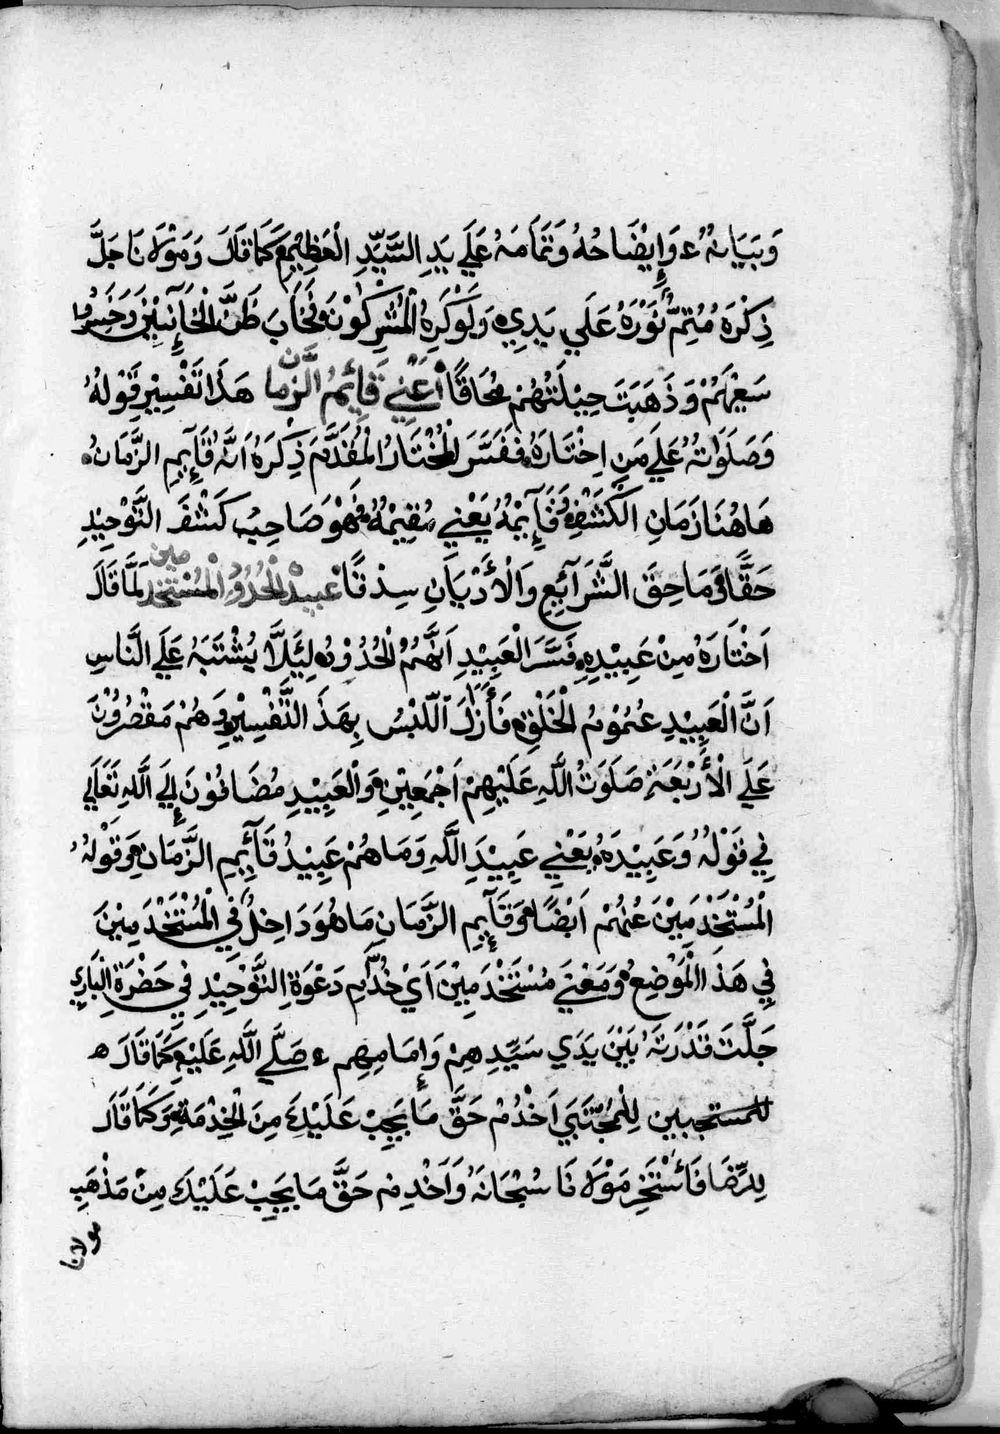 وَبَيَانُهُ وَإِيْضَاحُهُ وَتَمَامَهُ عَلَي يَدِ السَّيِّدِ الْعَظِيْمِ كَمَا قَالَ وَمَوْلَانَا جَلَّ
ذِكْرَهُ مُتِمُّ نُوْرَهُ عَلَي يَدِي وَلَوْ كَرِهَ الْمُشْرِكُوْنَ وَخَابَ ظَنَّ الْخَآئِبِيْنَ وَخَسِرُوا
سَعْيَهُمْ وَذَهَبَتَ حِيْلَتُهُمْ مُحَاقًا أَعْنِي قَائِمُ الزَّمان هَذَا تَفْسِيْرِ قَوْلُهُ
وَصَلَوَاتُهُ عَلَي مَنِ اِخْتَارَهُ فَفَسَّرَ الْمُخْتَارُ الْمُقَدَّمَ ذِكْرَهُ اَنَّهُ قَآئِمِ الزَّمَانُ
هَاهُنَا زَمَانِ الْكَشْفِ وَقَآئِمُهُ يَعْنِي مُقِيْمُهُ فَهُوَ صَاحِبُ كَشْفَ التَّوْحِيْدِ
حَقًّا وَمَاحِقَ الشَّرَآئِعِ وَالْأَدْيَانِ سِدْقًا عَبِيْدُ الْحُدُوْدِ الْمُسْتَخْدَمِين لَمَّا قَالَ
اَخْتَارَهُ مِنْ عَبِيْدِهِ فَسَّرَ الْعَبِيْدِ اَنَّهُمْ الْحُدُوْدُ لِئَلَّا يُشْتَبَهُ عَلَي النَّاسِ
اَنَّ الْعَبِيْدِ عُمُوْمُ الْخَلْقِ فَأَزَالَ اللَّبْسُ بِهَذَ التَّفْسِيْرِ وَهُمْ مَقْصُرُوْنَ
عَلَي الْأَرْبَعَةِ صَلَوَتُ اللَّهِ عَلَيْهِمْ اَجْمَعِيْنِ وَالْعَبِيْدِ مُضَافُوْنَ إِلَي اللَّهِ تَعَالَي
فِي قَوْلُهُ وَعَبِيْدَهُ يَعْنِي عَبِيْدَ اللَّهِ وَمَا هُمْ عَبِيْدُ قَآئِمِ الزَّمَانِ وَقَوْلُهُ
الْمُسْتَخْدَمِيْنَ عَنْهُمْ اَيْضًا وَقَآئِمِ الزَّمَانِ مَا هُوَ دَاخِلُ فِي الْمُسْتَخْدَمِيْنَ
فِي هَذَا الْمَوْضِعُ وَمَعْنَي مُسْتَخْدَمِيْنَ اَيْ خُدَّامِ دَعْوَةِ التَّوْحِيْدِ فِي حَضْرَةِ الْبَارِي
جَلَّتَ قُدْرَتَهُ بَيْنَ يَدَي سَيِّدِهِمْ وَإِمَامِهِمْ صَلَّي اللَّهِ عَلَيْهِ كَمَا قَالَ
للمستجيبين لِلْمُجْتَبَي اَخْدُمْ حَقَّ مَا يَجِبْ عَلَيْكَ مِنَ الْخِدْمَةِ وَكَمَا قَالَ
لِلرِّضَا فَاسْتَخِرْ مَوْلَانَا سُبْحَانَهُ وَاَخْدِمْ حَقَّ مَا يَجِبْ عَلَيْكَ مِنْ مَذْهَبِ
مولانا